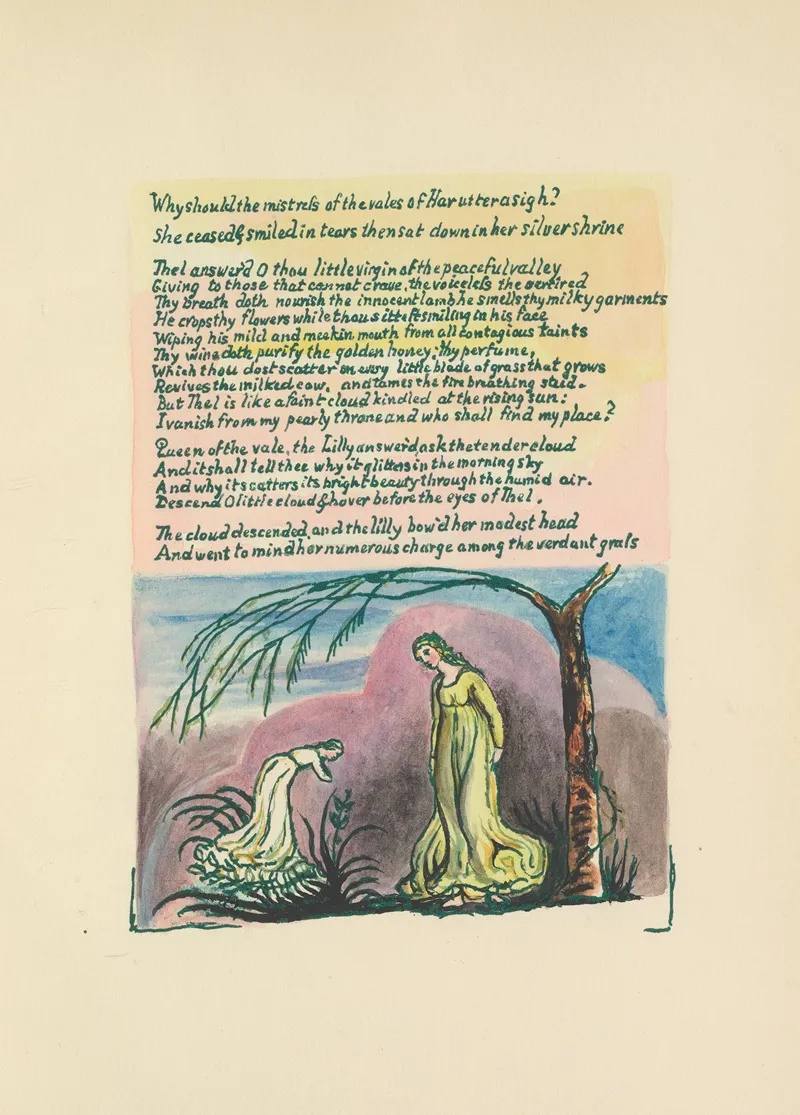 Why should the mistress of the vales of Har utter a sigh?
She ceased & smiled in tears then sat down in her silver shrine
Thel answerd O thou little virgin of the peaceful valley
Giving to those that cannot crave, the voiceless the oertired
Thy breath doth nourish the innocent lamb, he smells thy milky garments
He crops thy flowers while thou sittest smiling in his face
Wiping his mild and meekin mouth from all contagious taints
Thy wine doth purify the golden honey; thy perfume,
Which thou dost scatter on every little blade of grass that grows
Revives the milked cow, and tames the fire breathing steed.
But Thel is like a faint cloud kindled at the rising sun:
I vanish from my pearly throne and who shall find my place?
Queen of the vale, the Lilly answerd, ask the tender cloud
And it shall tell thee why it glitters in the morning sky
And why it scatters its bright beauty through the humid air.
Descend O little cloud & hover before the eyes of Thel.
The cloud descended, and the lilly bow'd her modest head
And went to mind her numerous charge among the verdant grass